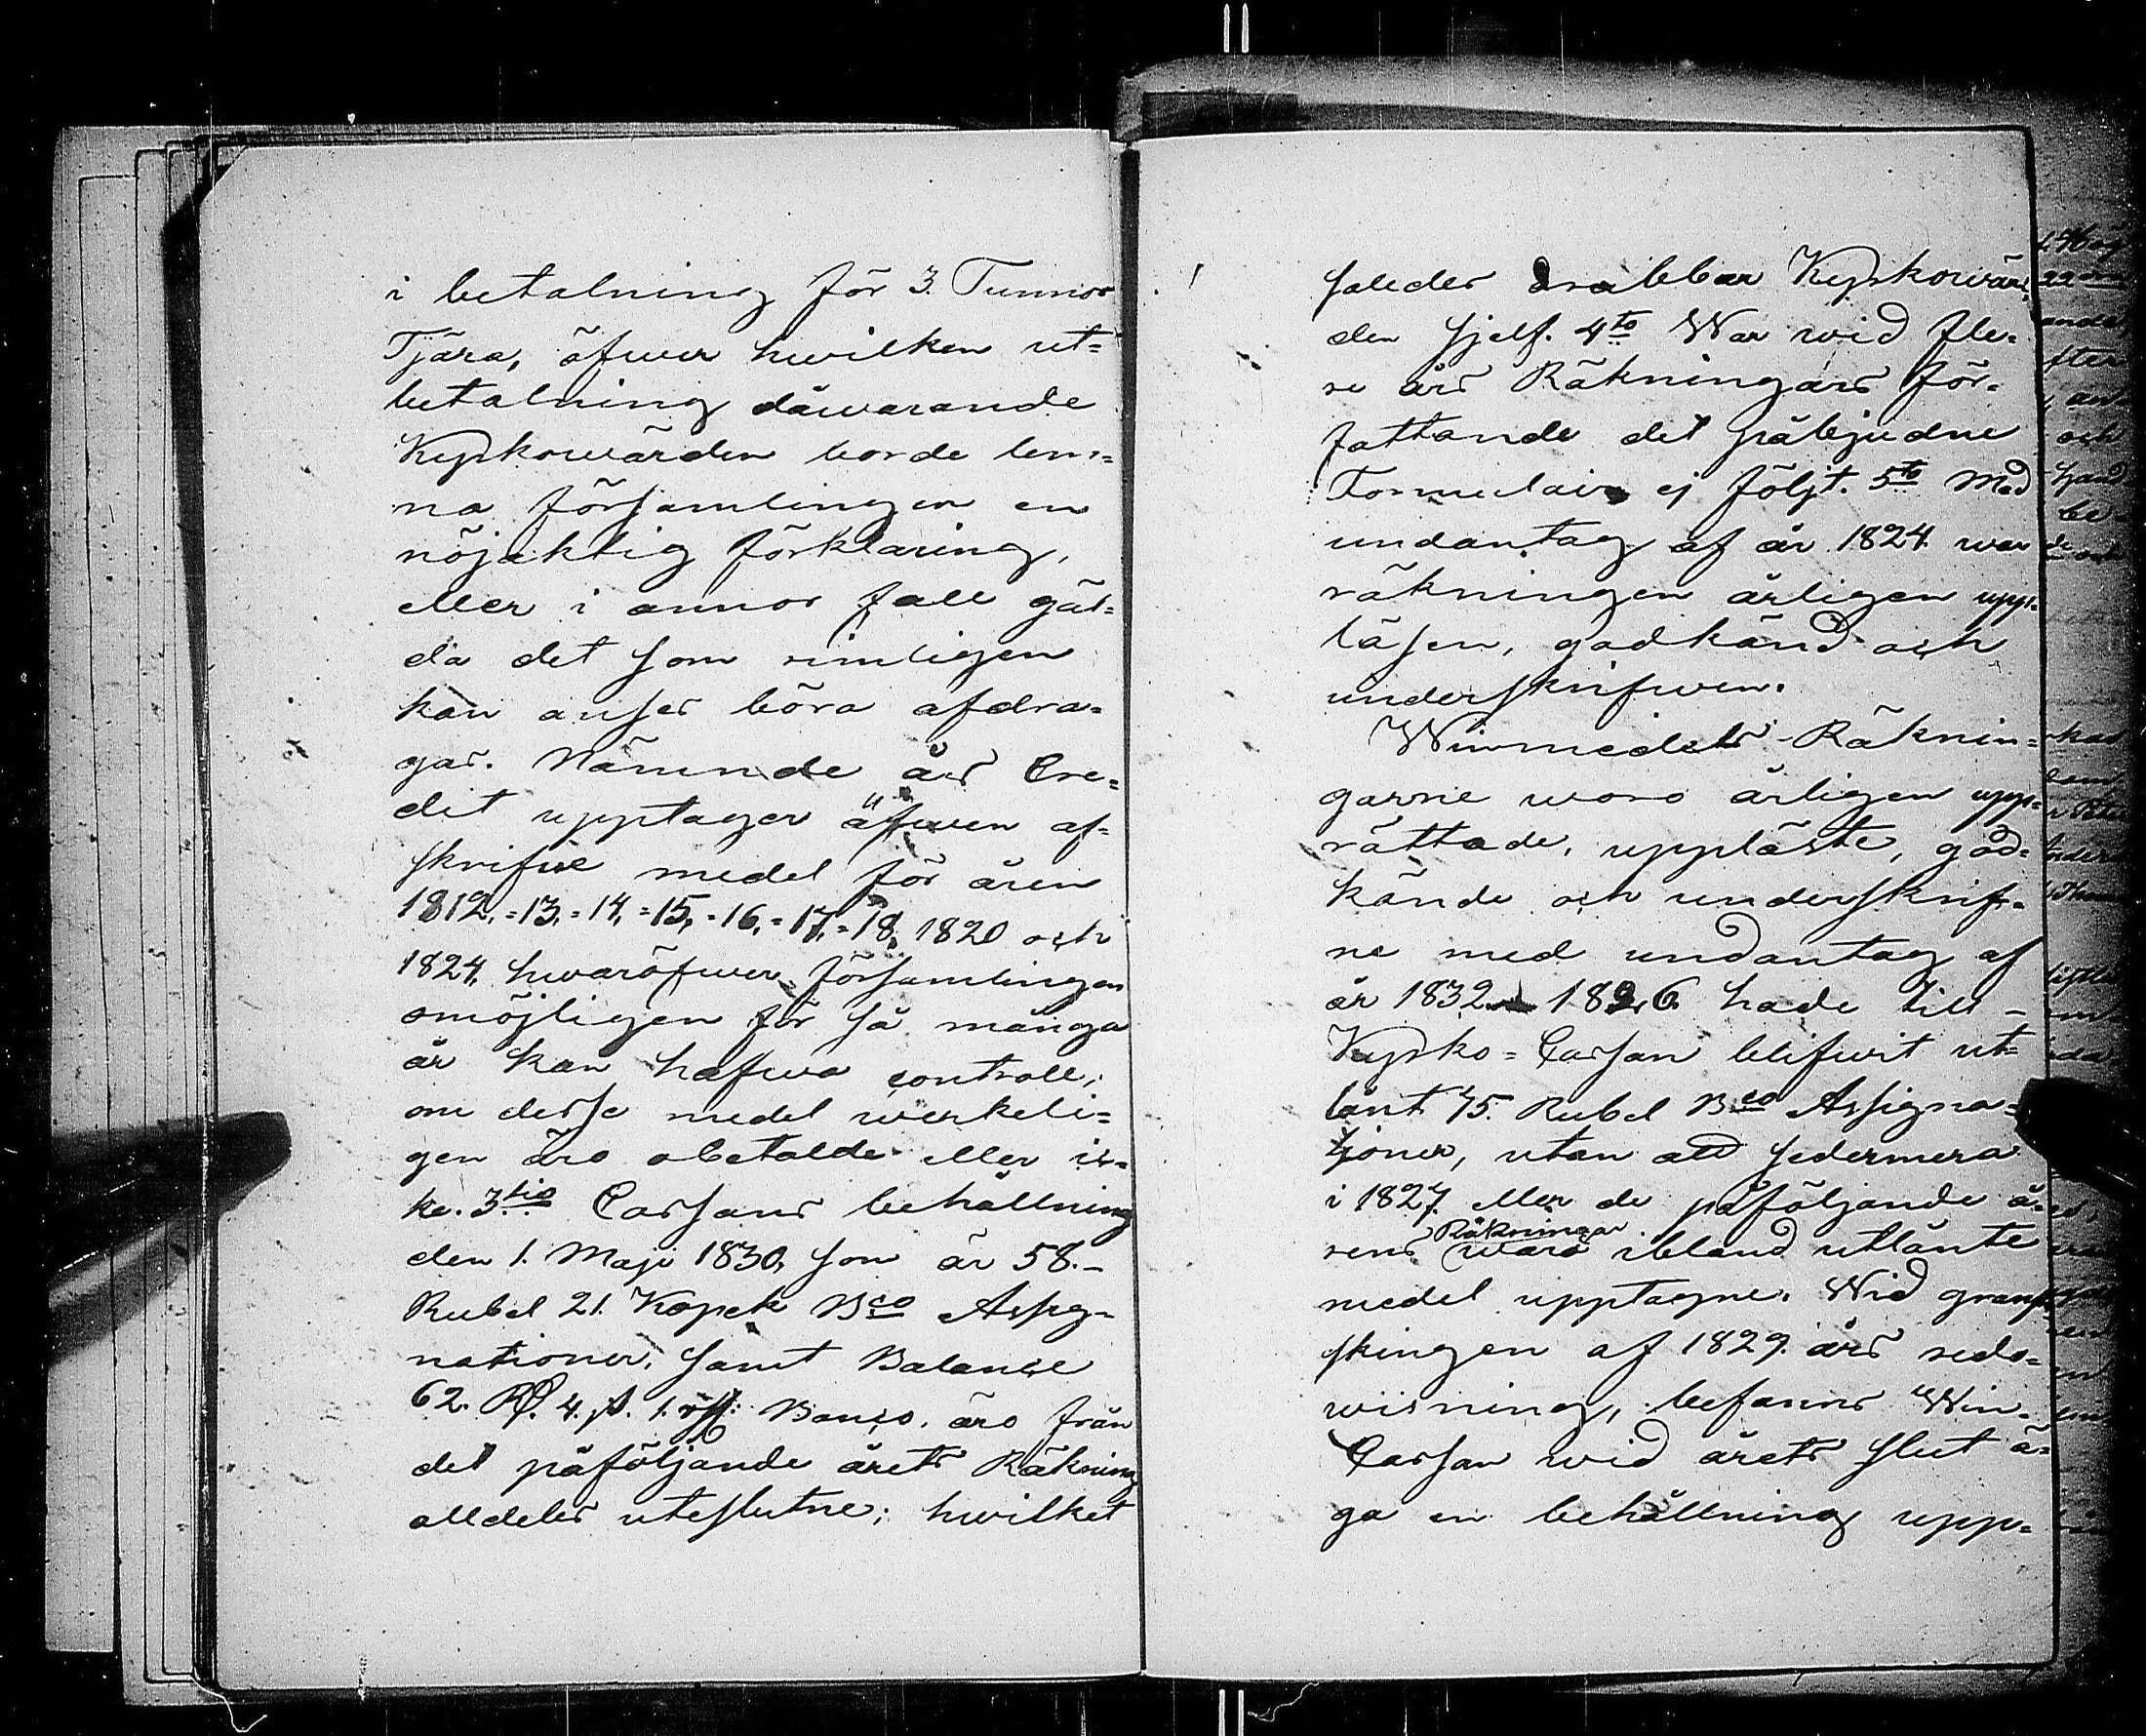 i betalning för 3. Tunnor
Tjära, öfwer hwilken ut=
betalning dåwarande
Kyrkowärden borde lem=
na församlingen en
nöjaktig förklaring,
eller i annor fall gäl=
da det som rimligen
kan anses böra afdra=
gas. Nämnde års Cre=
dit upptager äfwen af=
skrifne medel för åren
1812,=13,=14,=15,=16,=17,=18, 1820 och
1824, hwaröfwer församlingen
omöjligen för så många
år kan hafwa controll,
om desse medel werkeli=
gen äro obetalde eller ic=
ke. 3tio Cassans behållning
den 1. Maji 1830, som är 58.-
Rubel 21. Kopek Bco Assig=
nationer, samt Balance
62. Rd. 4. s. 1. rst: Banco. äro från
det påföljande årets Räkning
alldeles uteslutne; hwilket
således drabbar Kyrkowär=
den sjelf. 4to War wid fle=
re års Räkningars för=
fattande det påbjudne
Formulair ej följt. 5to Med
undantag af år 1824. war
räkningen årligen upp=
läsen, godkänd och
underskrifwen.
Winmedels-Räknin=
garne woro årligen upp=
rättade, uppläste, god=
kände och underskrif=
ne med undantag af
år 1832. 1826. hade till
Kyrko=Cassan blifwit ut=
lånt 45. Rubel Bco Assigna=
tjoner, utan att sedermera
i 1827. eller de påföljande å=
rens Räkningar wara ibland utlånte
medel upptagne. Wid gran=
skingen af 1829. års redo=
wisning, befanns Win=
Cassan wid årets slut ä=
ga en behållning upp=